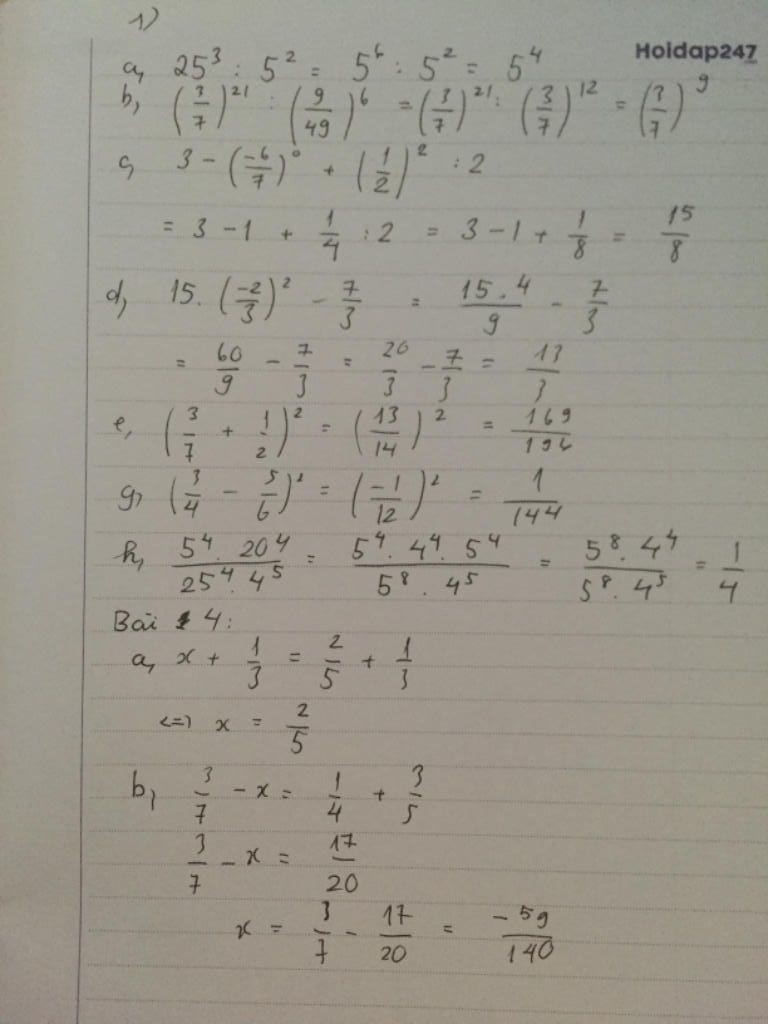 1)
Hoidap247
a, 25³ : 5² = 5⁶ : 5² = 5⁴
b, (3/7)²¹ : (9/49)⁶ = (3/7)²¹ : (3/7)¹² = (3/7)⁹
c, 3 - (-6/7)⁰ + (1/2)² : 2
= 3 - 1 + 1/4 : 2 = 3 - 1 + 1/8 = 15/8
d, 15. (-2/3)² - 7/3 = 15.4/9 - 7/3
= 60/9 - 7/3 = 20/3 - 7/3 = 13/3
e, (3/7 + 1/2)² = (13/14)² = 169/196
g, (3/4 - 5/6)² = (-1/12)² = 1/144
h, 5⁴. 20⁴/25⁴. 4⁵ = 5⁴. 4⁴. 5⁴/5⁸. 4⁵ = 5⁸. 4⁴/5⁸. 4⁵ = 1/4
Bài 4:
a, x + 1/3 = 2/5 + 1/3
<=> x = 2/5
b, 3/7 - x = 1/4 + 3/5
3/7 - x = 17/20
x = 3/7 - 17/20 = -59/140